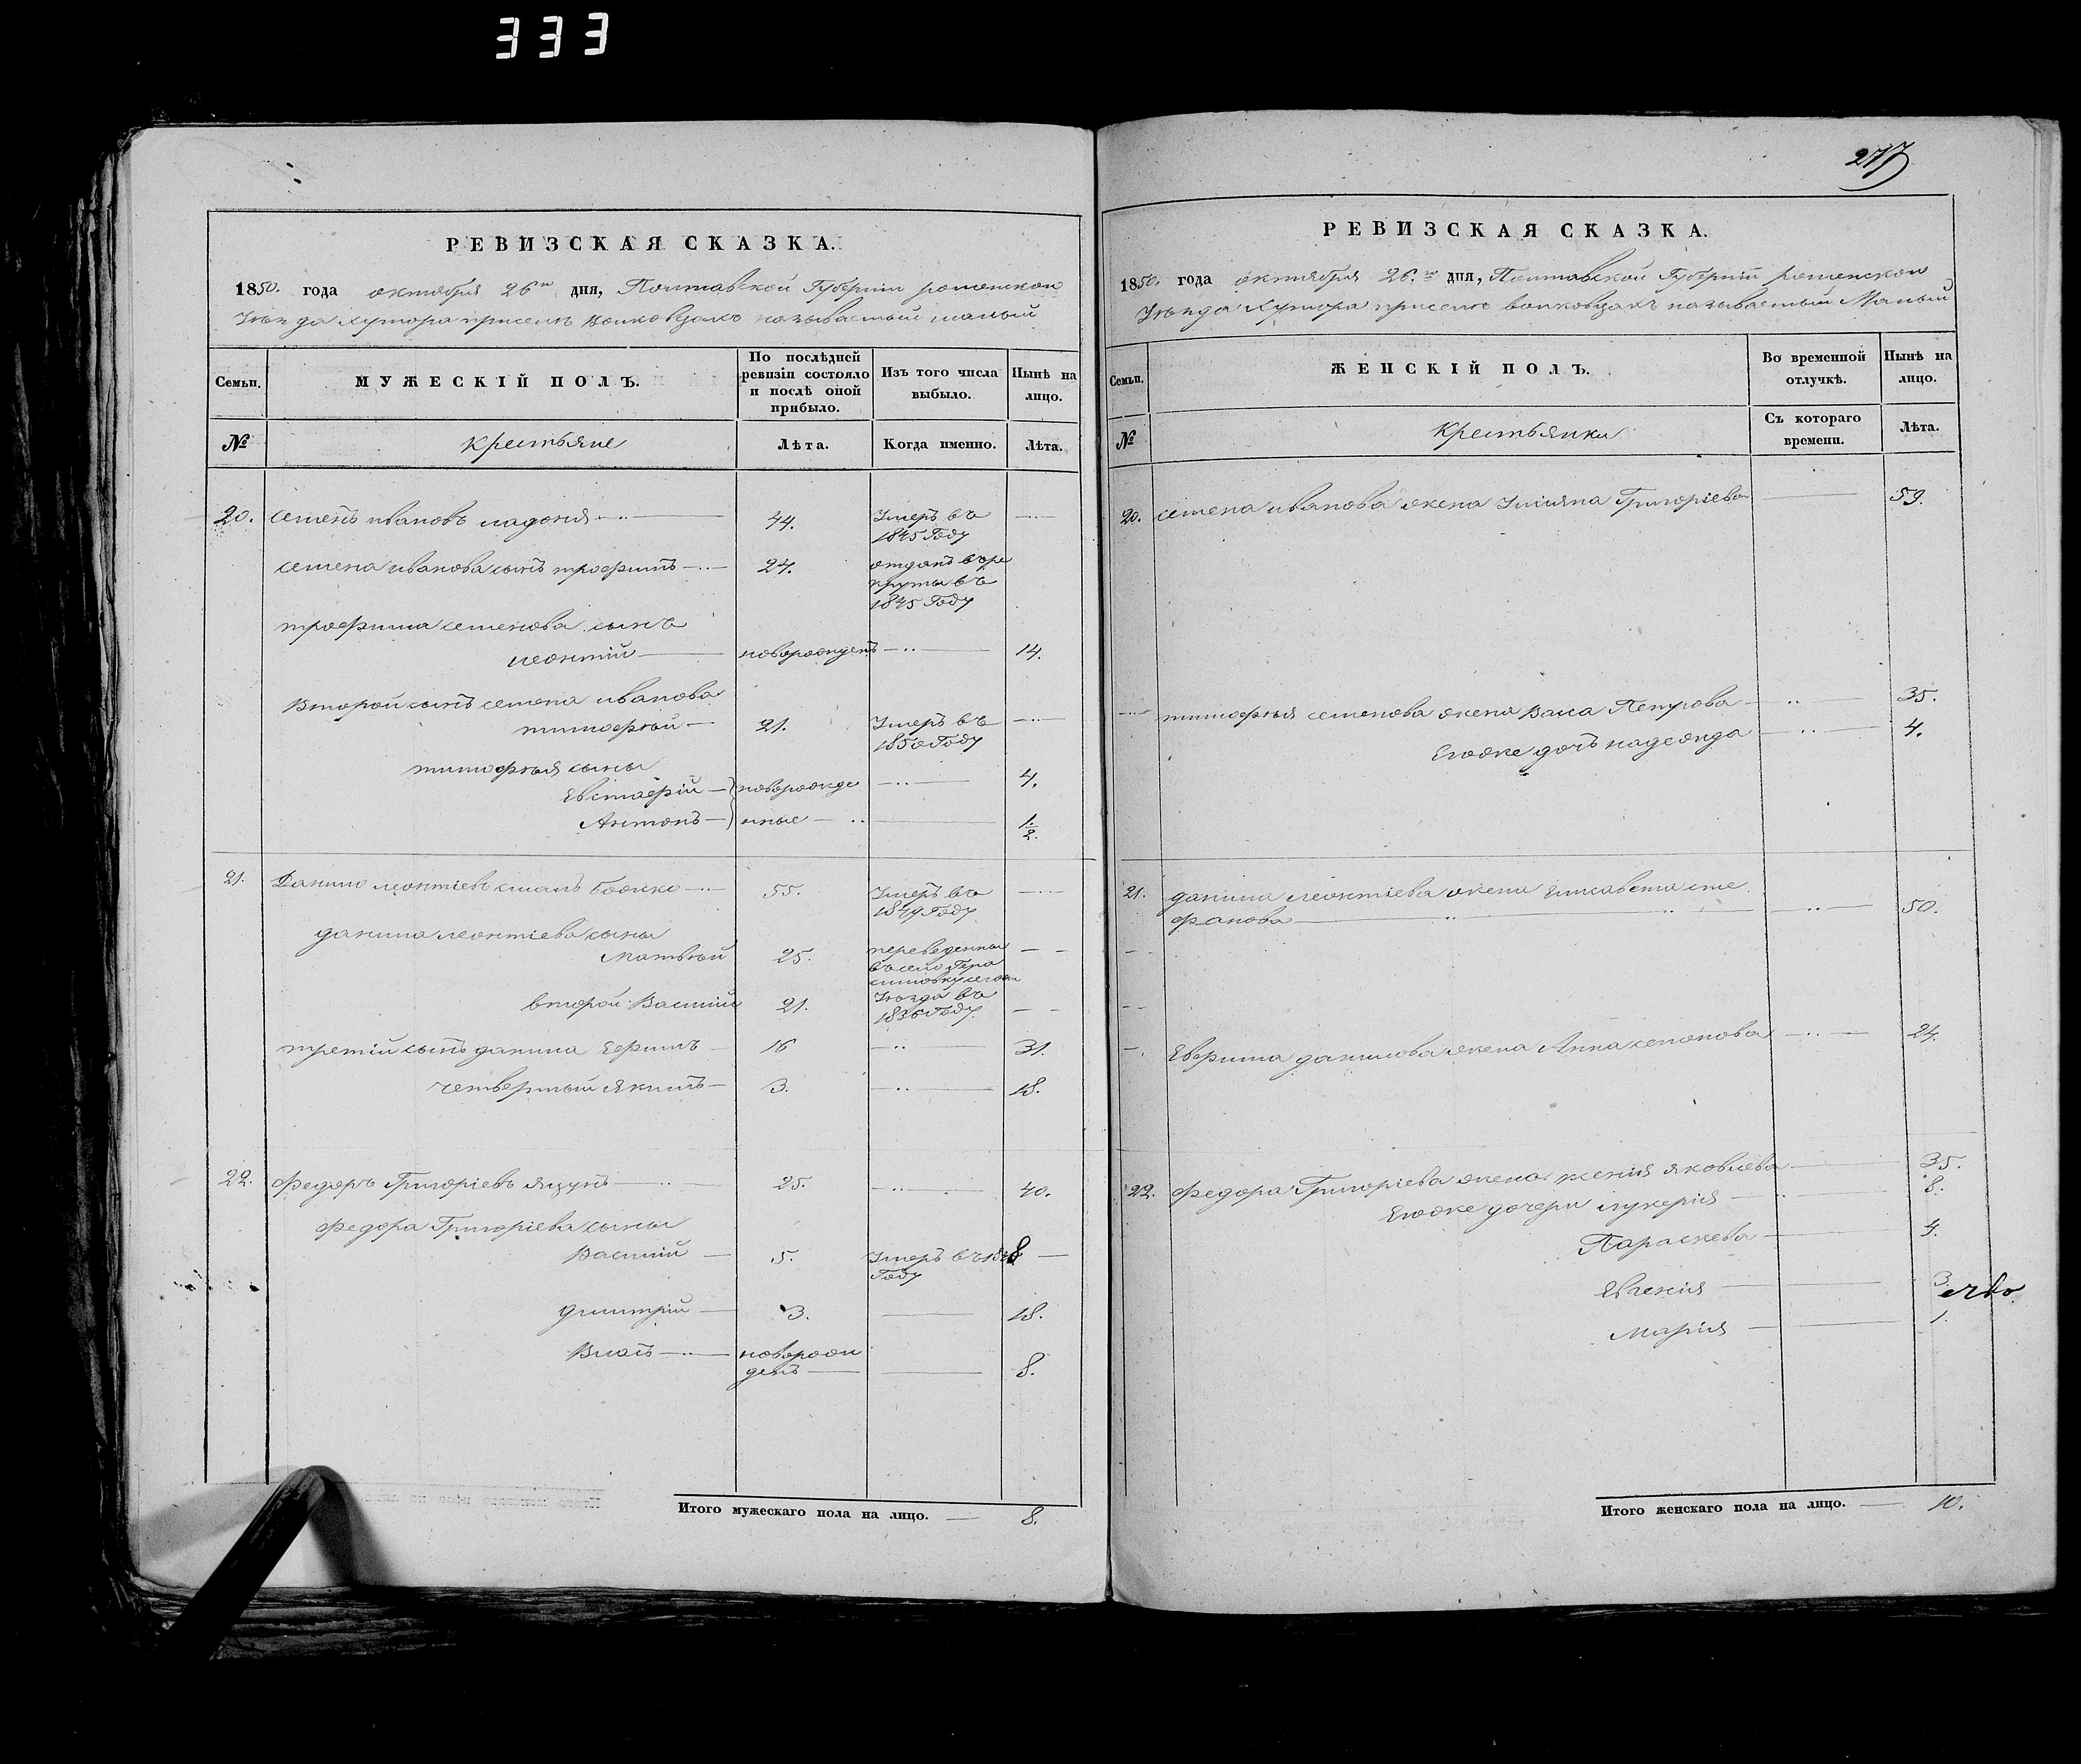 333
277
РЕВИЗСКАЯ СКАЗКА.
1850. года октября 26го дня, Полтавской Губерніи роменского
Уѣзда хутора приселѣ Волковцахъ называемый малый
Семьи.
МУЖЕСКІЙ ПОЛЪ.
По послѣдней ревизіи состояло и послѣ оной прибыло.
Изъ того числа выбыло.
Нынѣ на лицо.
№
Крестьяне
Лѣта.
Когда именно.
Лѣта.
20. семенъ ивановъ 44. Умеръ въ
1845 Году
семена иванова сынъ трофимъ 24. отданъ въ ре
круты въ
1845 Году
трофима семенова сынъ
леонтій новорожденъ 14.
Второй сынъ семена иванова
тимофѣй 21. Умеръ въ
1850 Году
тимофѣя сыны
Евстафій новорожде 4.
Антонъ нные 1/2.
21. Данило леонтіевъ Божко 55. Умеръ въ
1849 Году
данила леонтіева сыны
Матвѣй 25. переведенны
въ село Гера
симовку
второй Василій 21. Уѣзда въ
1836 Году
третій сынъ данила Ефимъ 16 31.
четвертый якимъ 3. 18.
22. Федоръ Григоріевъ яцунъ 25. 40.
Федора Григоріева сыны
Василій 5. Умеръ въ
Году
димитрій 3. 18.
Власъ новорож
денъ 8.
Итого мужескаго пола на лицо. 8.
РЕВИЗСКАЯ СКАЗКА.
1850. года октября 26.го дня, Полтавской Губерніи роменского
Уѣзда Хутора приселѣ волковцахъ называемый Малый
Семьи.
ЖЕНСКІЙ ПОЛЪ.
Во временной отлучкѣ.
Нынѣ на лицо.
№
Крестьянки
Съ котораго времени.
Лѣта.
20. семена иванова жена Уліяна Григоріева 59.
тимофѣя семенова жена Васа Петрова 35.
Егоже дочь надежда 4.
21. данила леонтіева жена Елисавета сте
фанова 50.
Ефима данилова жена Анна 24.
22. Федора Григоріева жена ксенія яковлева 35.
Егоже дочери лукерія 8.
Параскева 4.
Евгенія 3.
Марія 1.
Итого женскаго пола на лицо. 10.